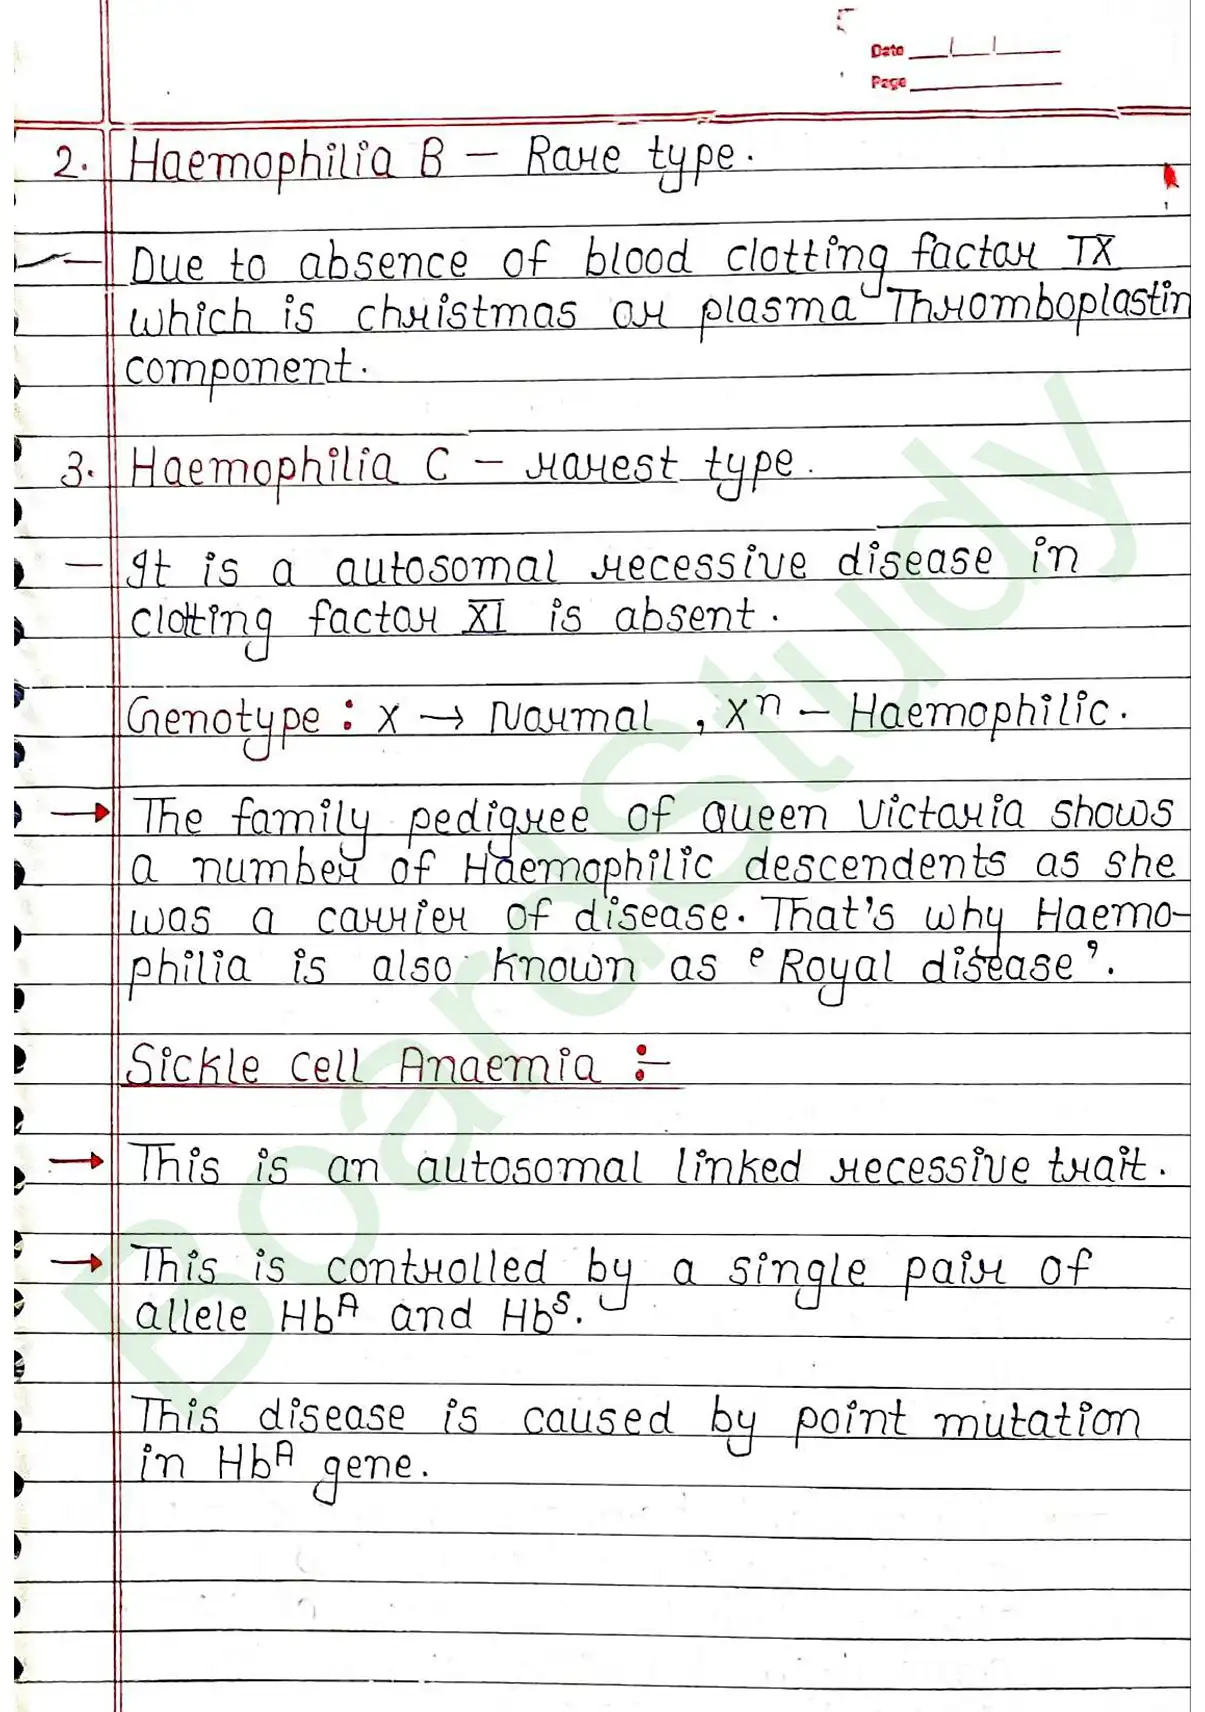 Date
Page
2. Haemophilia B – Rare type.
– Due to absence of blood clotting factor IX
which is christmas or plasma Thromboplastin
component.
3. Haemophilia C – rarest type.
– It is a autosomal recessive disease in
clotting factor XI is absent.
Genotype : X → Normal , Xⁿ – Haemophilic.
→ The family pedigree of Queen Victoria shows
a number of Haemophilic descendents as she
was a carrier of disease. That's why Haemo-
philia is also known as ‘Royal disease’.
Sickle cell Anaemia :-
→ This is an autosomal linked recessive trait.
→ This is controlled by a single pair of
allele Hbᴬ and Hbˢ.
This disease is caused by point mutation
in Hbᴬ gene.
BoardStudy